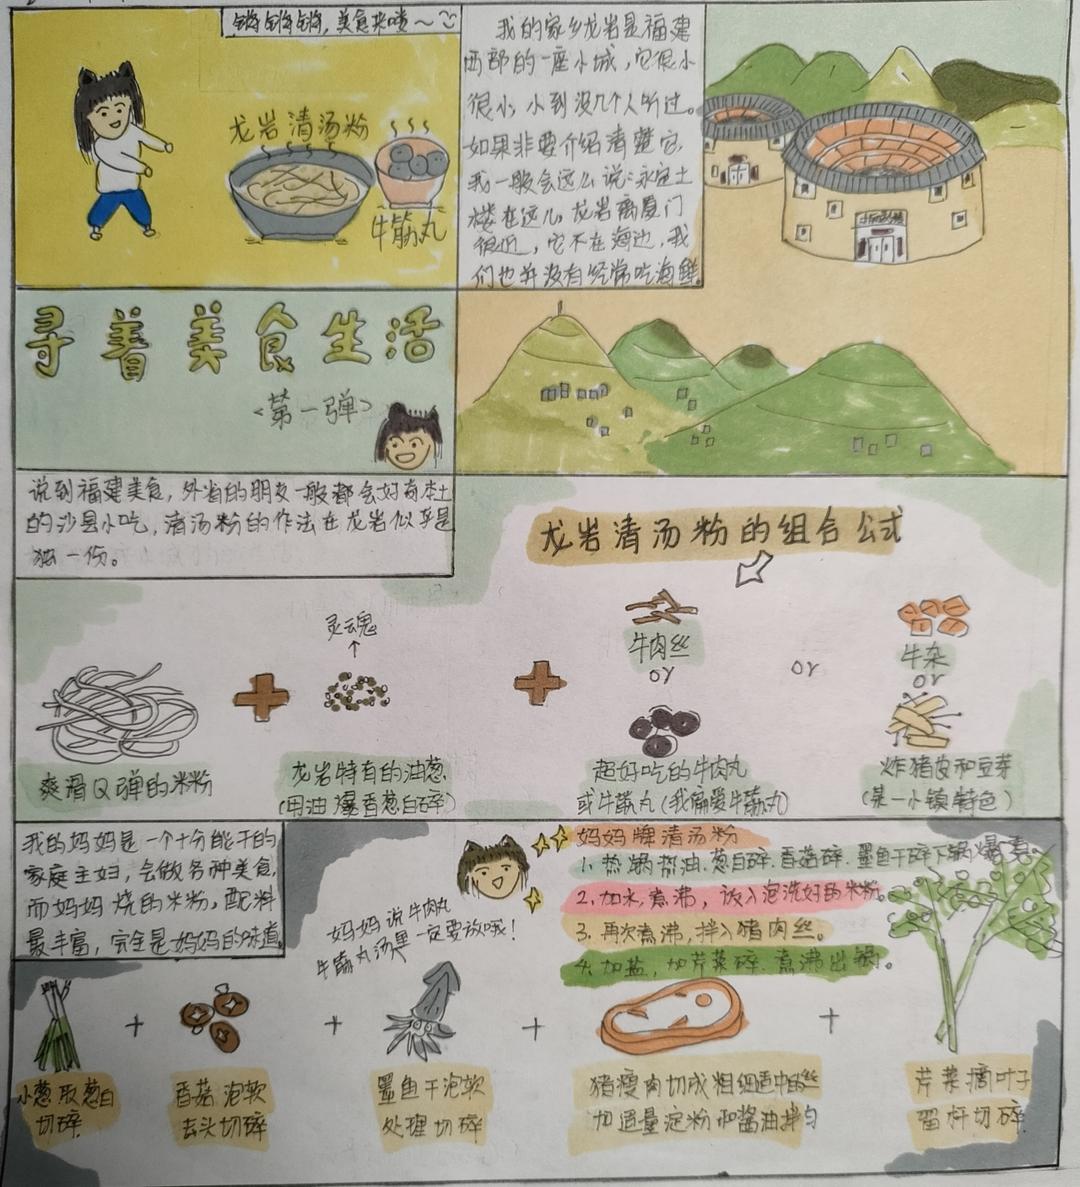 锵锵锵锵,美食来喽～
龙岩清汤粉
牛筋丸
我的家乡龙岩是福建
西部的一座小城,它很小
很小,小到没几个人听过。
如果非要介绍清楚它,
我一般会这么说:永定土
楼在这儿。龙岩离厦门
很近,它不在海边,我
们也并没有经常吃海鲜。
寻着美食生活
<第一弹>
说到福建美食,外省的朋友一般都会好奇本土
的沙县小吃,清汤粉的作法在龙岩似乎是
独一份。
龙岩清汤粉的组合公式
灵魂
牛肉丝
or
or
牛杂
or
爽滑Q弹的米粉
龙岩特有的油葱
(用油爆香葱白碎)
超好吃的牛肉丸
或牛筋丸(我偏爱牛筋丸)
炸猪皮和豆芽
(某一小镇特色)
我的妈妈是一个十分能干的
家庭主妇,会做各种美食,
而妈妈烧的米粉,配料
最丰富,完全是妈妈的味道。
妈妈说牛肉丸
牛筋丸汤里一定要放哦!
妈妈牌清汤粉
1.热锅热油,葱白碎.香菇碎.墨鱼干碎下锅爆香。
2.加水,煮沸,放入泡洗好的米粉。
3.再次煮沸,拌入猪肉丝。
4.加盐,加芹菜碎.煮沸出锅。
小葱取葱白
切碎
香菇泡软
去头切碎
墨鱼干泡软
处理切碎
猪瘦肉切成粗细适中的丝
加适量淀粉和酱油拌匀
芹菜摘叶子
留杆切碎